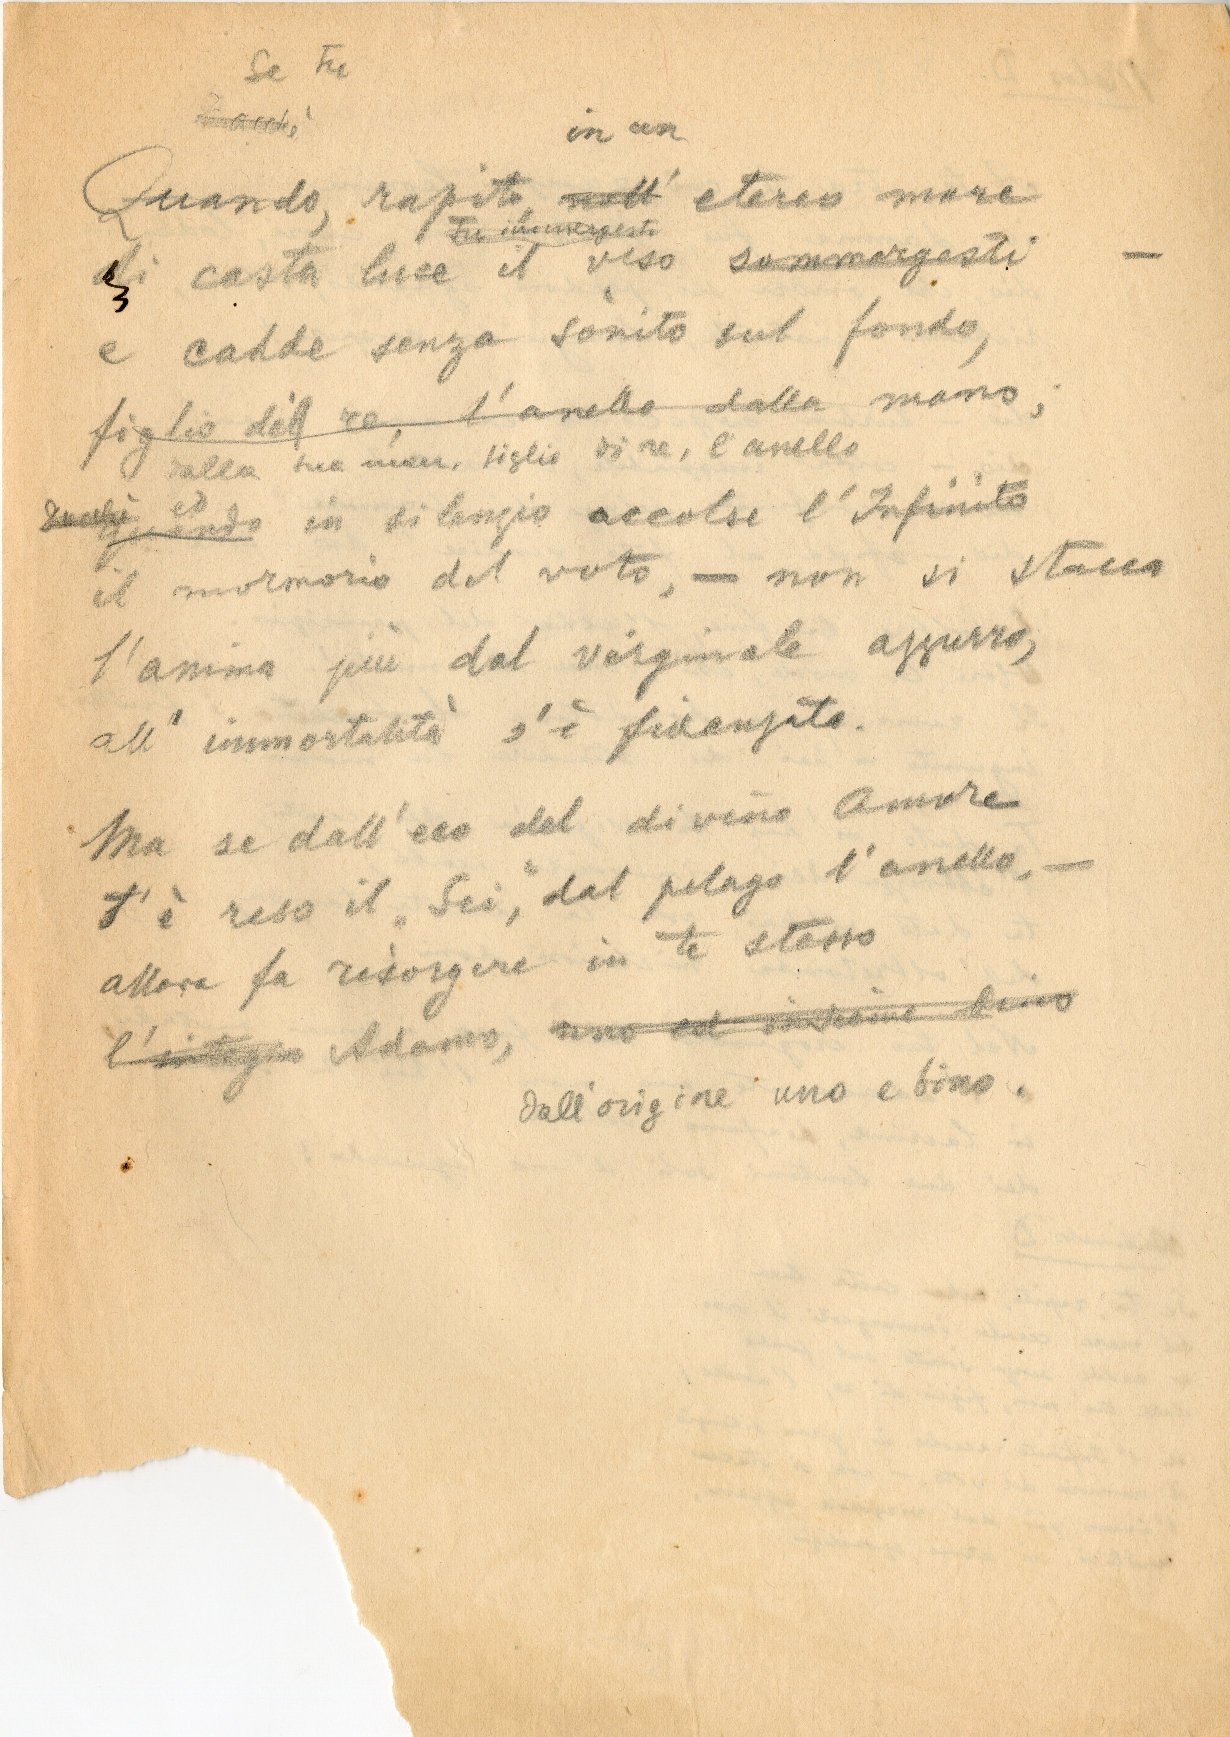 Se tu
in un
Quando, rapito, nell' etereo mare
tu immergesti
di casta luce il viso sommergesti —
e cadde senza sònito sul fondo,
figlio del re, l'anello dalla mano;
dalla tua man, figlio di re, l'anello
ed
quando in silenzio accolse l'Infinito
il mormorio del voto, — non si stacca
l'anima più dal virginale azzurro,
all' immortalità s'è fidanzata.
Ma se dall'eco del divino Amore
t'è reso il „Sei," dal pelago l'anello, —
allora fa risorgere in te stesso
l'integro Adamo, uno ed insieme bino
dall'origine uno e bino.